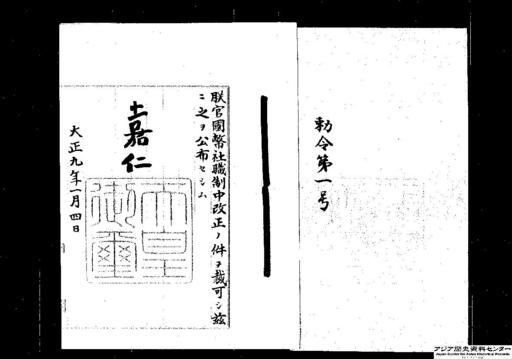 勅令第一号
朕官國幣社職制中改正ノ件ヲ裁可シ茲
ニ之ヲ公布セシム
嘉仁
天皇
御璽
大正九年一月四日
アジア歴史資料センター
Japan Center for Asian Historical Records